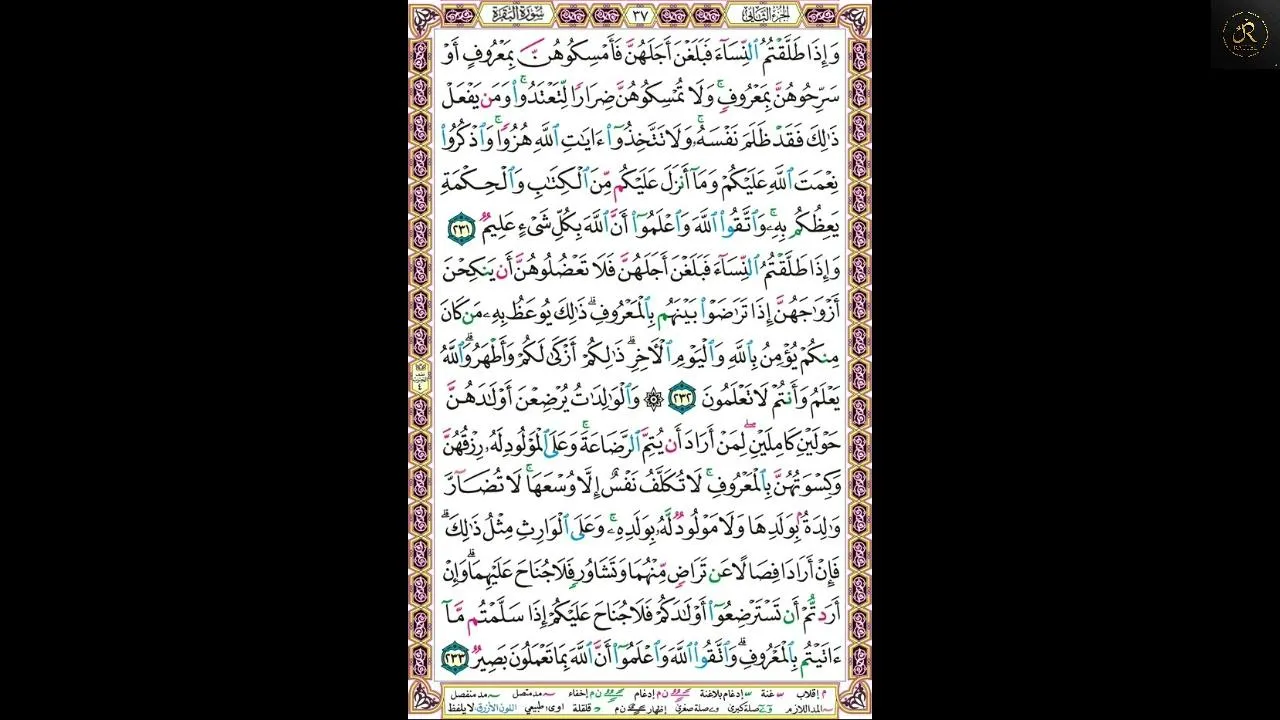 الجزء الثاني ٣٧ سورة البقرة
وَإِذَا طَلَّقْتُمُ ٱلنِّسَآءَ فَبَلَغْنَ أَجَلَهُنَّ فَأَمْسِكُوهُنَّ بِمَعْرُوفٍ أَوْ
سَرِّحُوهُنَّ بِمَعْرُوفٍۚ وَلَا تُمْسِكُوهُنَّ ضِرَارًا لِّتَعْتَدُوا۟ۚ وَمَن يَفْعَلْ
ذَٰلِكَ فَقَدْ ظَلَمَ نَفْسَهُۥۚ وَلَا تَتَّخِذُوٓا۟ ءَايَٰتِ ٱللَّهِ هُزُوًاۚ وَٱذْكُرُوا۟
نِعْمَتَ ٱللَّهِ عَلَيْكُمْ وَمَآ أَنزَلَ عَلَيْكُم مِّنَ ٱلْكِتَٰبِ وَٱلْحِكْمَةِ
يَعِظُكُم بِهِۦۚ وَٱتَّقُوا۟ ٱللَّهَ وَٱعْلَمُوٓا۟ أَنَّ ٱللَّهَ بِكُلِّ شَىْءٍ عَلِيمٌ ٢٣١
وَإِذَا طَلَّقْتُمُ ٱلنِّسَآءَ فَبَلَغْنَ أَجَلَهُنَّ فَلَا تَعْضُلُوهُنَّ أَن يَنكِحْنَ
أَزْوَٰجَهُنَّ إِذَا تَرَٰضَوْا۟ بَيْنَهُم بِٱلْمَعْرُوفِۗ ذَٰلِكَ يُوعَظُ بِهِۦ مَن كَانَ
مِنكُمْ يُؤْمِنُ بِٱللَّهِ وَٱلْيَوْمِ ٱلْأَخِرِۗ ذَٰلِكُمْ أَزْكَىٰ لَكُمْ وَأَطْهَرُۗ وَٱللَّهُ
يَعْلَمُ وَأَنتُمْ لَا تَعْلَمُونَ ٢٣٢ ۞ وَٱلْوَٰلِدَٰتُ يُرْضِعْنَ أَوْلَٰدَهُنَّ
حَوْلَيْنِ كَامِلَيْنِۖ لِمَنْ أَرَادَ أَن يُتِمَّ ٱلرَّضَاعَةَۚ وَعَلَى ٱلْمَوْلُودِ لَهُۥ رِزْقُهُنَّ
وَكِسْوَتُهُنَّ بِٱلْمَعْرُوفِۚ لَا تُكَلَّفُ نَفْسٌ إِلَّا وُسْعَهَاۚ لَا تُضَآرَّ
وَٰلِدَةٌۢ بِوَلَدِهَا وَلَا مَوْلُودٌ لَّهُۥ بِوَلَدِهِۦۚ وَعَلَى ٱلْوَارِثِ مِثْلُ ذَٰلِكَۗ
فَإِنْ أَرَادَا فِصَالًا عَن تَرَاضٍ مِّنْهُمَا وَتَشَاوُرٍ فَلَا جُنَاحَ عَلَيْهِمَاۗ وَإِنْ
أَرَدتُّمْ أَن تَسْتَرْضِعُوٓا۟ أَوْلَٰدَكُمْ فَلَا جُنَاحَ عَلَيْكُمْ إِذَا سَلَّمْتُم مَّآ
ءَاتَيْتُم بِٱلْمَعْرُوفِۗ وَٱتَّقُوا۟ ٱللَّهَ وَٱعْلَمُوٓا۟ أَنَّ ٱللَّهَ بِمَا تَعْمَلُونَ بَصِيرٌ ٢٣٣
م إقلاب ّ غنة إدغام بلاغنة ن م إدغام ن م إخفاء مد متصل مد منفصل
المد اللازم صلة كبرى صلة صغرى إظهار ن م قلقلة اوى طبيعي اللون الأزرق لا يلفظ